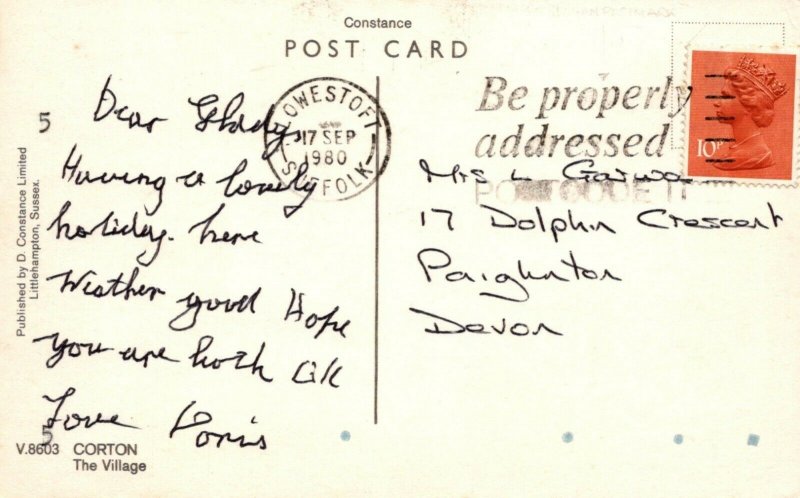 Constance
POST CARD
5
Dear Gladys
Having a lovely
holiday. here
Weather good Hope
you are both OK
Love Doris
5
V.8603 CORTON
The Village
Published by D. Constance Limited
Littlehampton, Sussex.
LOWESTOFT
17 SEP
1980
SUFFOLK
Be properly
addressed
POSTCODE IT
10P
Mrs L
17 Dolphin Crescent
Paignton
Devon